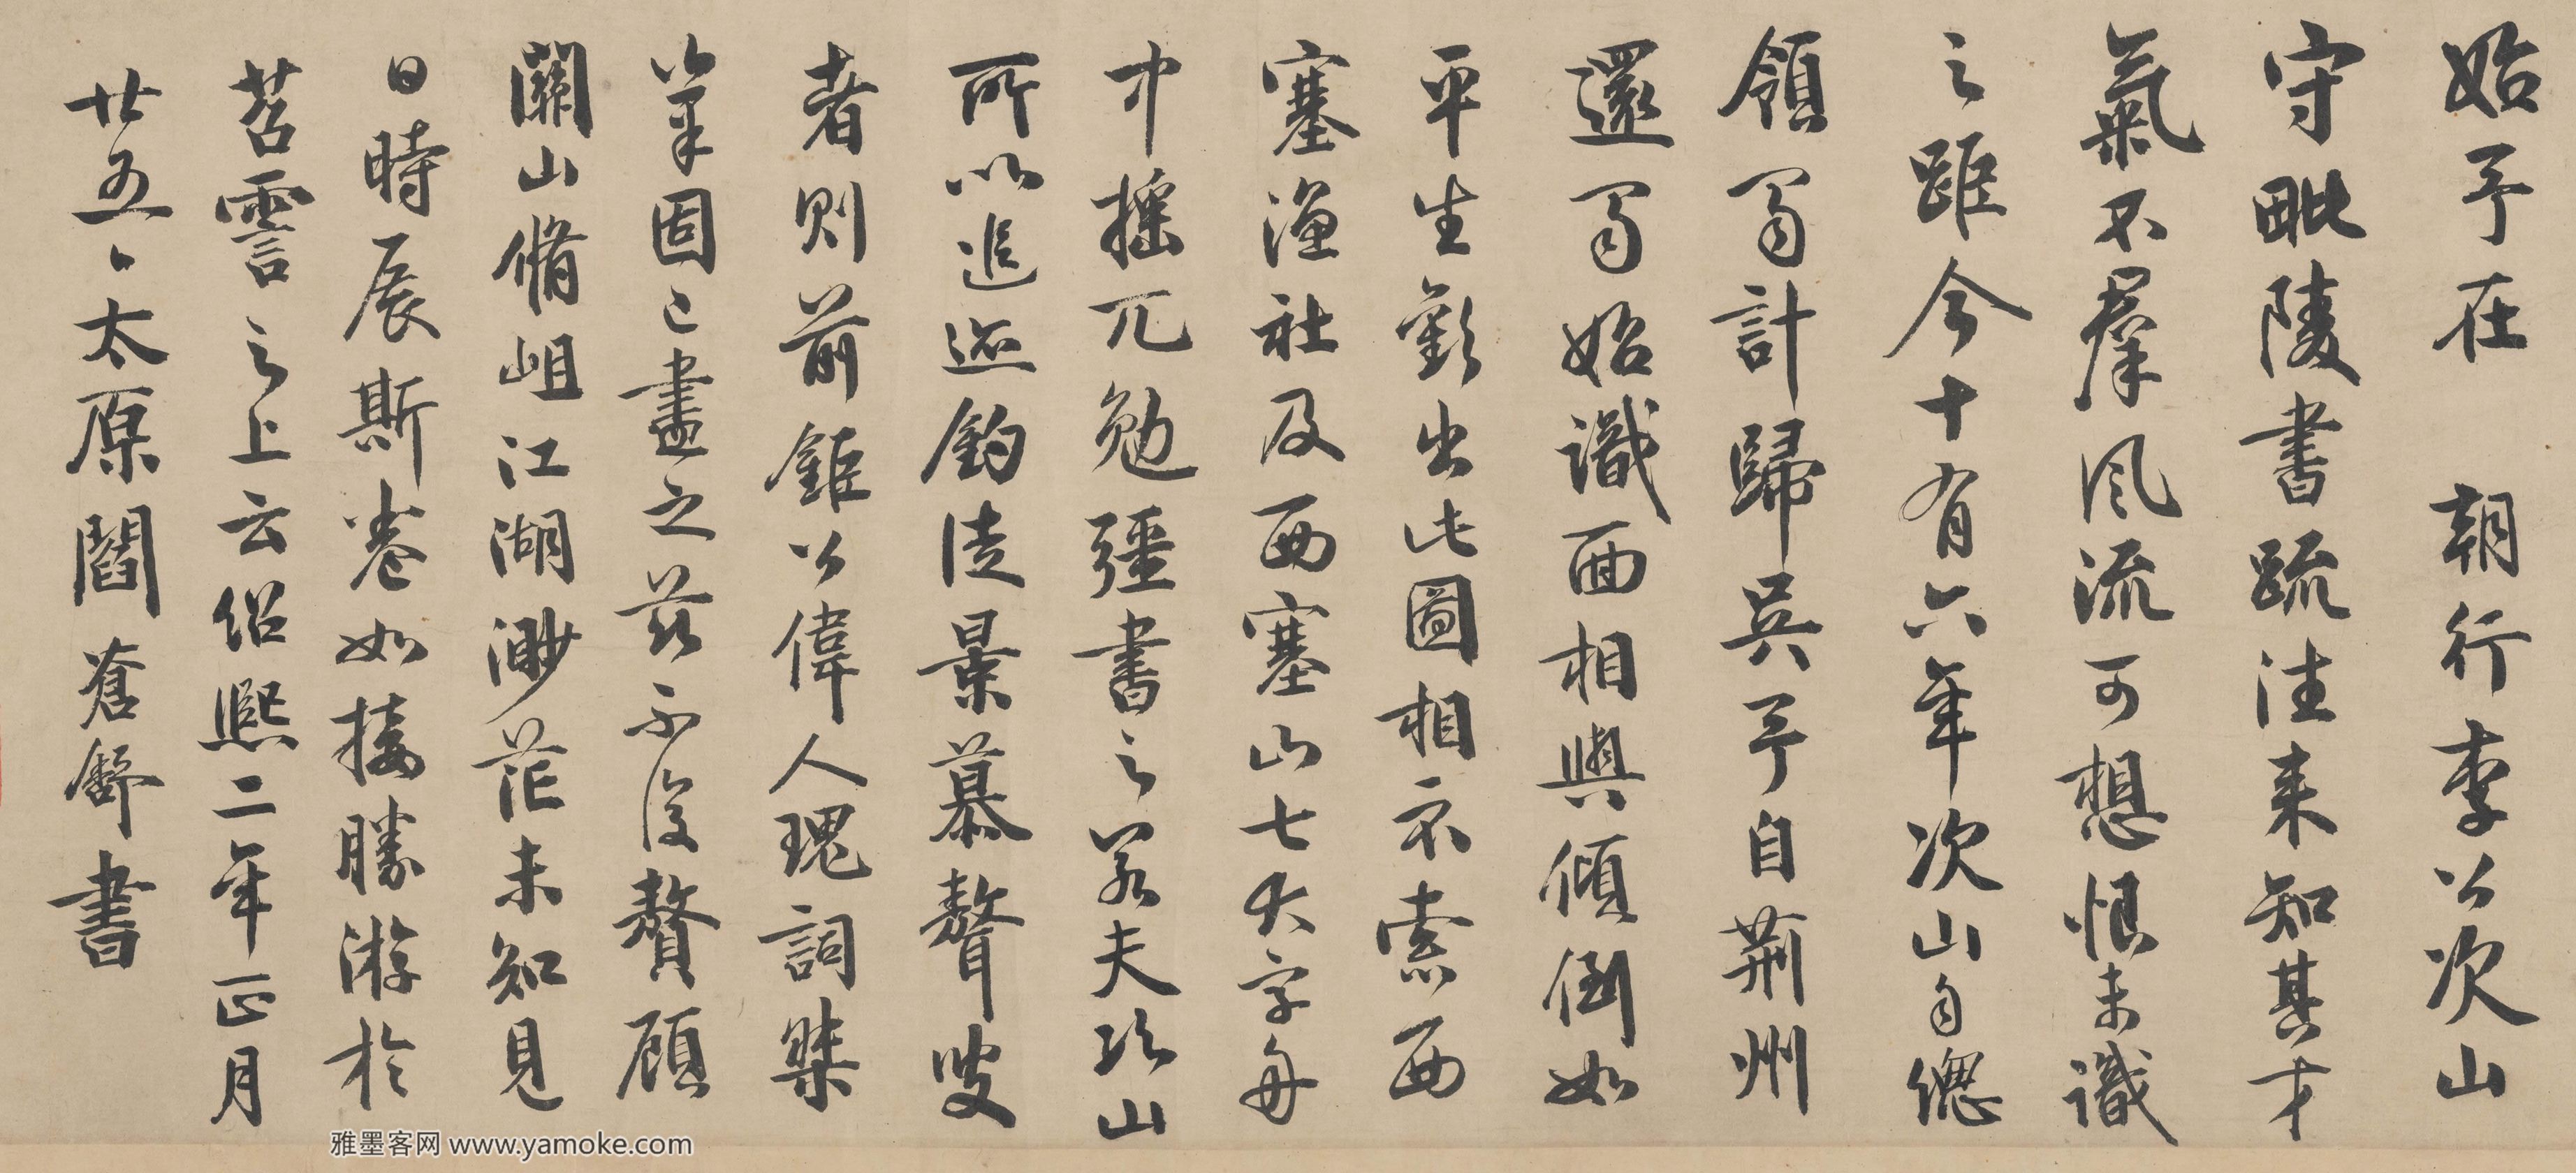 始予在 朝行李公次山
守毗陵書疏往来知其才
氣不羣風流可想恨未識
之雖今十有六年次山自總
領蜀計歸吳予自荊州
還蜀始識面相與傾倒如
平生歡出此圖相示索西
塞漁社及西塞山七大字舟
中搖兀勉彊書之若夫次山
所以追迹釣徒景慕聱叟
者則前鉅公偉人瑰詞桀
筆固已盡之茲不復贅顧
關山脩岨江湖渺茫未知見
日時展斯卷如接勝游於
苕霅之上云紹熙二年正月
廿五日太原閻蒼舒書
雅墨客网 www.yamoke.com